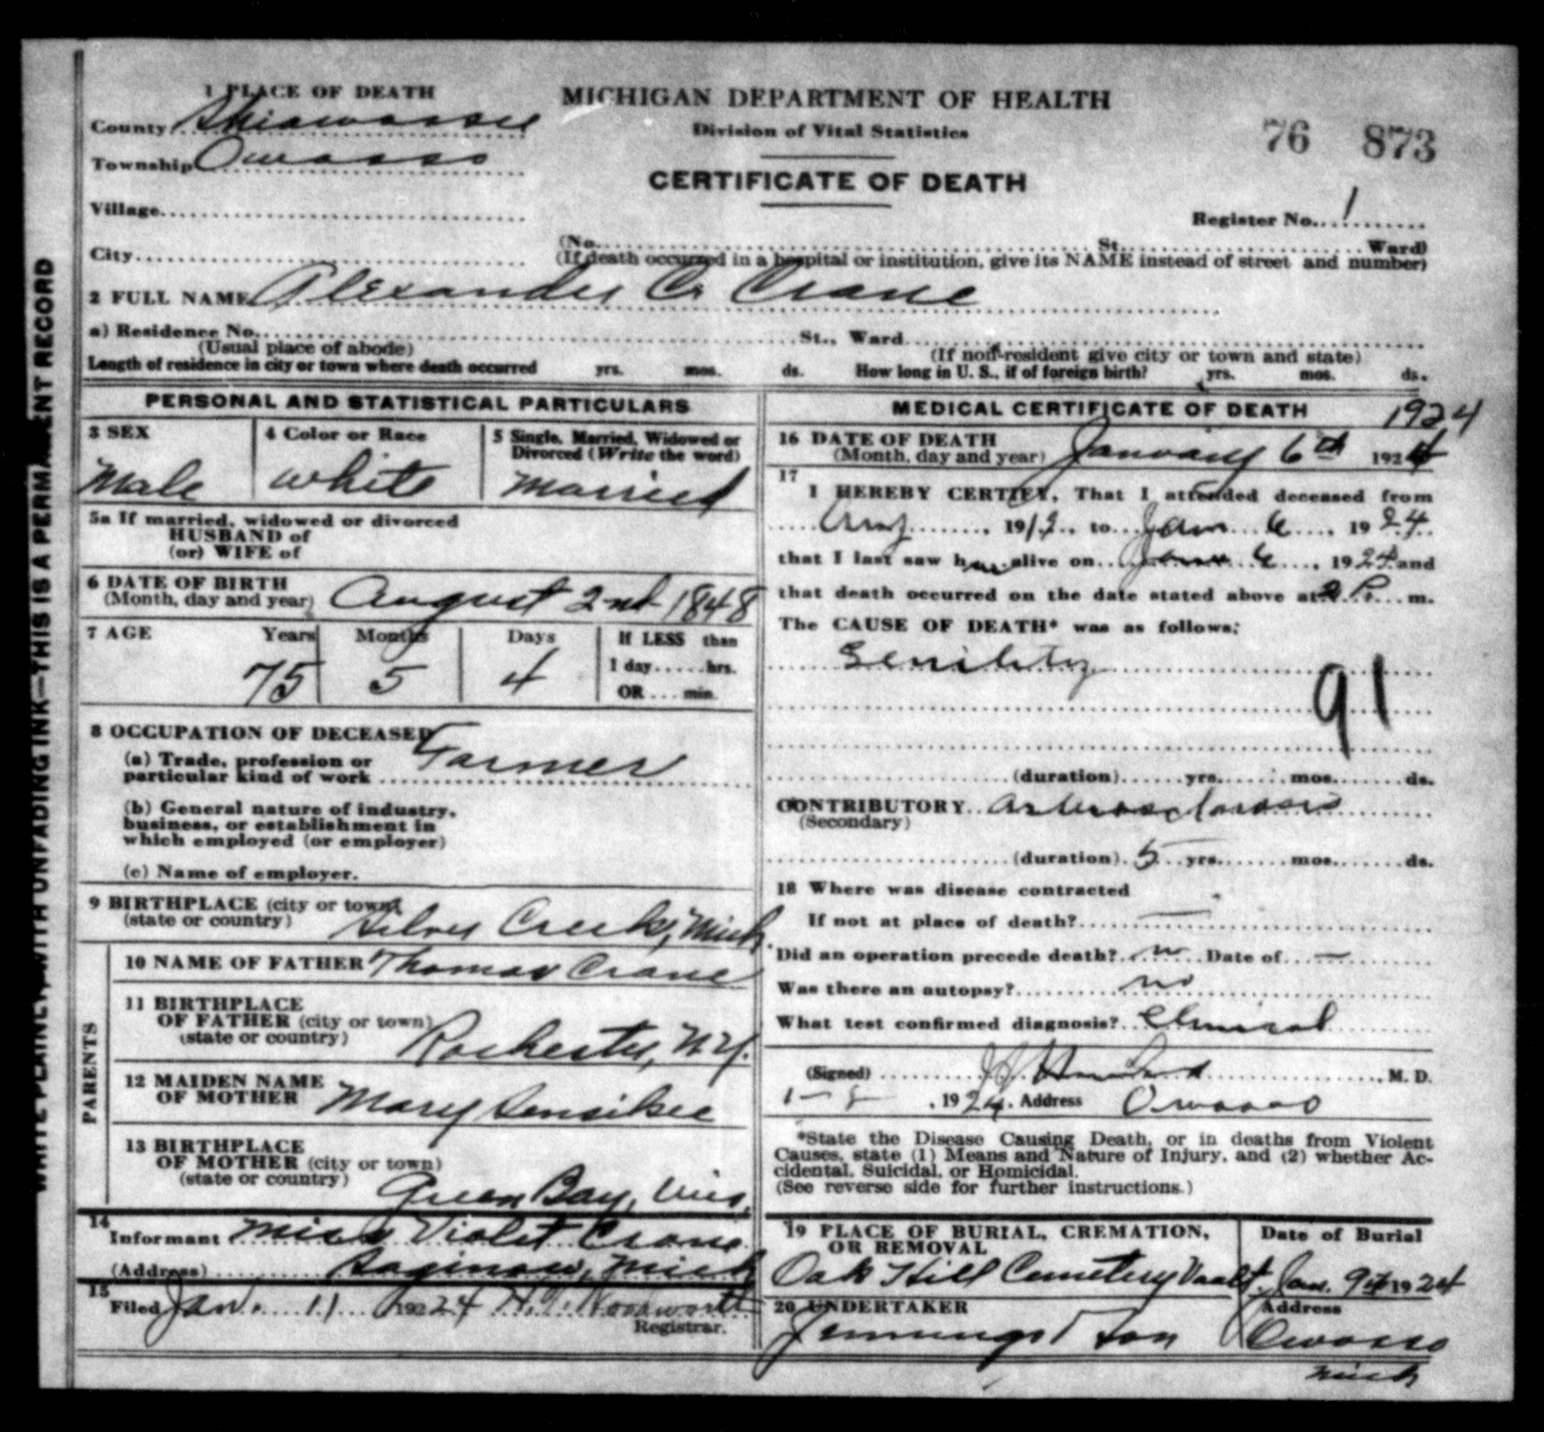 1 PLACE OF DEATH
MICHIGAN DEPARTMENT OF HEALTH
Division of Vital Statistics
76 873
County Shiawassee
Township Owosso
CERTIFICATE OF DEATH
Village
Register No. 1
City
(No. St. Ward)
(If death occurred in a hospital or institution, give its NAME instead of street and number)
2 FULL NAME Alexander C. Crane
a) Residence No. St., Ward
(Usual place of abode)
(If non-resident give city or town and state)
Length of residence in city or town where death occurred yrs. mos. ds. How long in U. S., if of foreign birth? yrs. mos. ds.
PERSONAL AND STATISTICAL PARTICULARS
3 SEX
Male
4 Color or Race
White
5 Single, Married, Widowed or
Divorced (Write the word)
Married
5a If married, widowed or divorced
HUSBAND of
(or) WIFE of
6 DATE OF BIRTH
(Month, day and year) August 2nd 1848
7 AGE Years Months Days If LESS than
1 day......hrs.
75 5 4
OR....min.
8 OCCUPATION OF DECEASED
(a) Trade, profession or
particular kind of work Farmer
(b) General nature of industry,
business, or establishment in
which employed (or employer)
(c) Name of employer.
9 BIRTHPLACE (city or town)
(state or country) Silver Creek, Mich
PARENTS
10 NAME OF FATHER Thomas Crane
11 BIRTHPLACE
OF FATHER (city or town)
(state or country) Rochester, N.Y.
12 MAIDEN NAME
OF MOTHER Mary
13 BIRTHPLACE
OF MOTHER (city or town)
(state or country) Green Bay, Wis.
14
Informant Miss Violet Crane
(Address) Saginaw, Mich
15
Filed Jan. 11 1924 Woodworth
Registrar.
MEDICAL CERTIFICATE OF DEATH 1924
16 DATE OF DEATH
(Month, day and year) January 6th 1924
17
I HEREBY CERTIFY, That I attended deceased from
Aug, 19 to Jan 6, 1924
that I last saw him alive on Jan 6, 1924 and
that death occurred on the date stated above at 2 P. m.
The CAUSE OF DEATH* was as follows:
Senility
91
(duration) yrs. mos. ds.
CONTRIBUTORY Arteriosclerosis
(Secondary)
(duration) 5 yrs. mos. ds.
18 Where was disease contracted
If not at place of death? —
Did an operation precede death? no Date of —
Was there an autopsy? no
What test confirmed diagnosis? Clinical
(Signed) M. D.
1-8, 1924. Address Owosso
*State the Disease Causing Death, or in deaths from Violent
Causes, state (1) Means and Nature of Injury, and (2) whether Ac-
cidental, Suicidal, or Homicidal.
(See reverse side for further instructions.)
19 PLACE OF BURIAL, CREMATION,
OR REMOVAL
Oak Hill Cemetery Vault
Date of Burial
Jan. 9th 1924
20 UNDERTAKER
Jennings & Son
Address
Owosso
Mich
WRITE PLAINLY, WITH UNFADING INK—THIS IS A PERMANENT RECORD